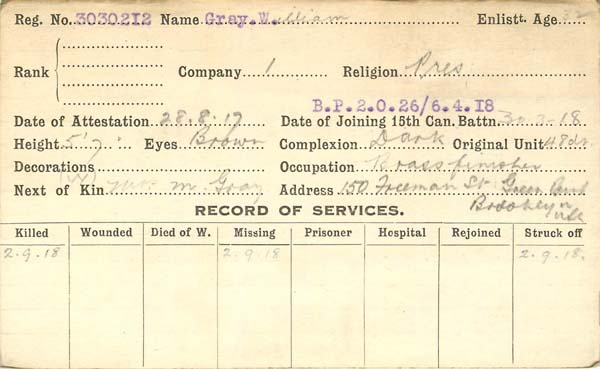 Reg. No. 3030212 Name Gray. W. illiam Enlistt. Age
Rank Company 1 Religion Pres
B.P.2.0.26/6.4.18
Date of Attestation 28.8.17 Date of Joining 15th Can. Battn. 30.3.18
Height 5'7" Eyes Brown Complexion Dark Original Unit
Decorations Occupation Brass finisher
Next of Kin Mrs M. Gray Address 150 Freeman St. Green
Brooklyn
RECORD OF SERVICES.
Killed Wounded Died of W. Missing Prisoner Hospital Rejoined Struck off
2.9.18 2.9.18 2.9.18.